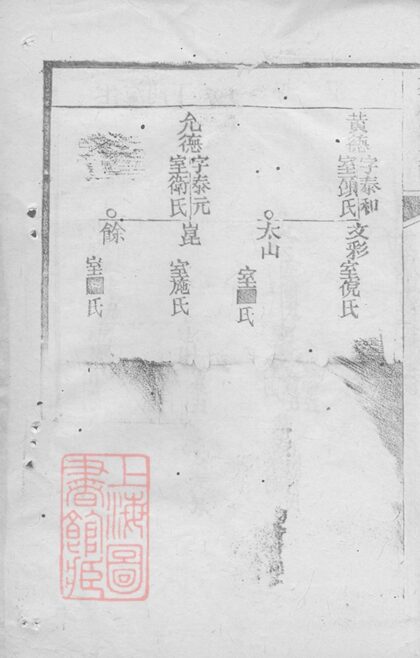 黃德字泰和
室顔氏
文彩室倪氏
太山
室 氏
允德字泰元
室衛氏
崑
室施氏
餘
室 氏
上海圖
書館藏